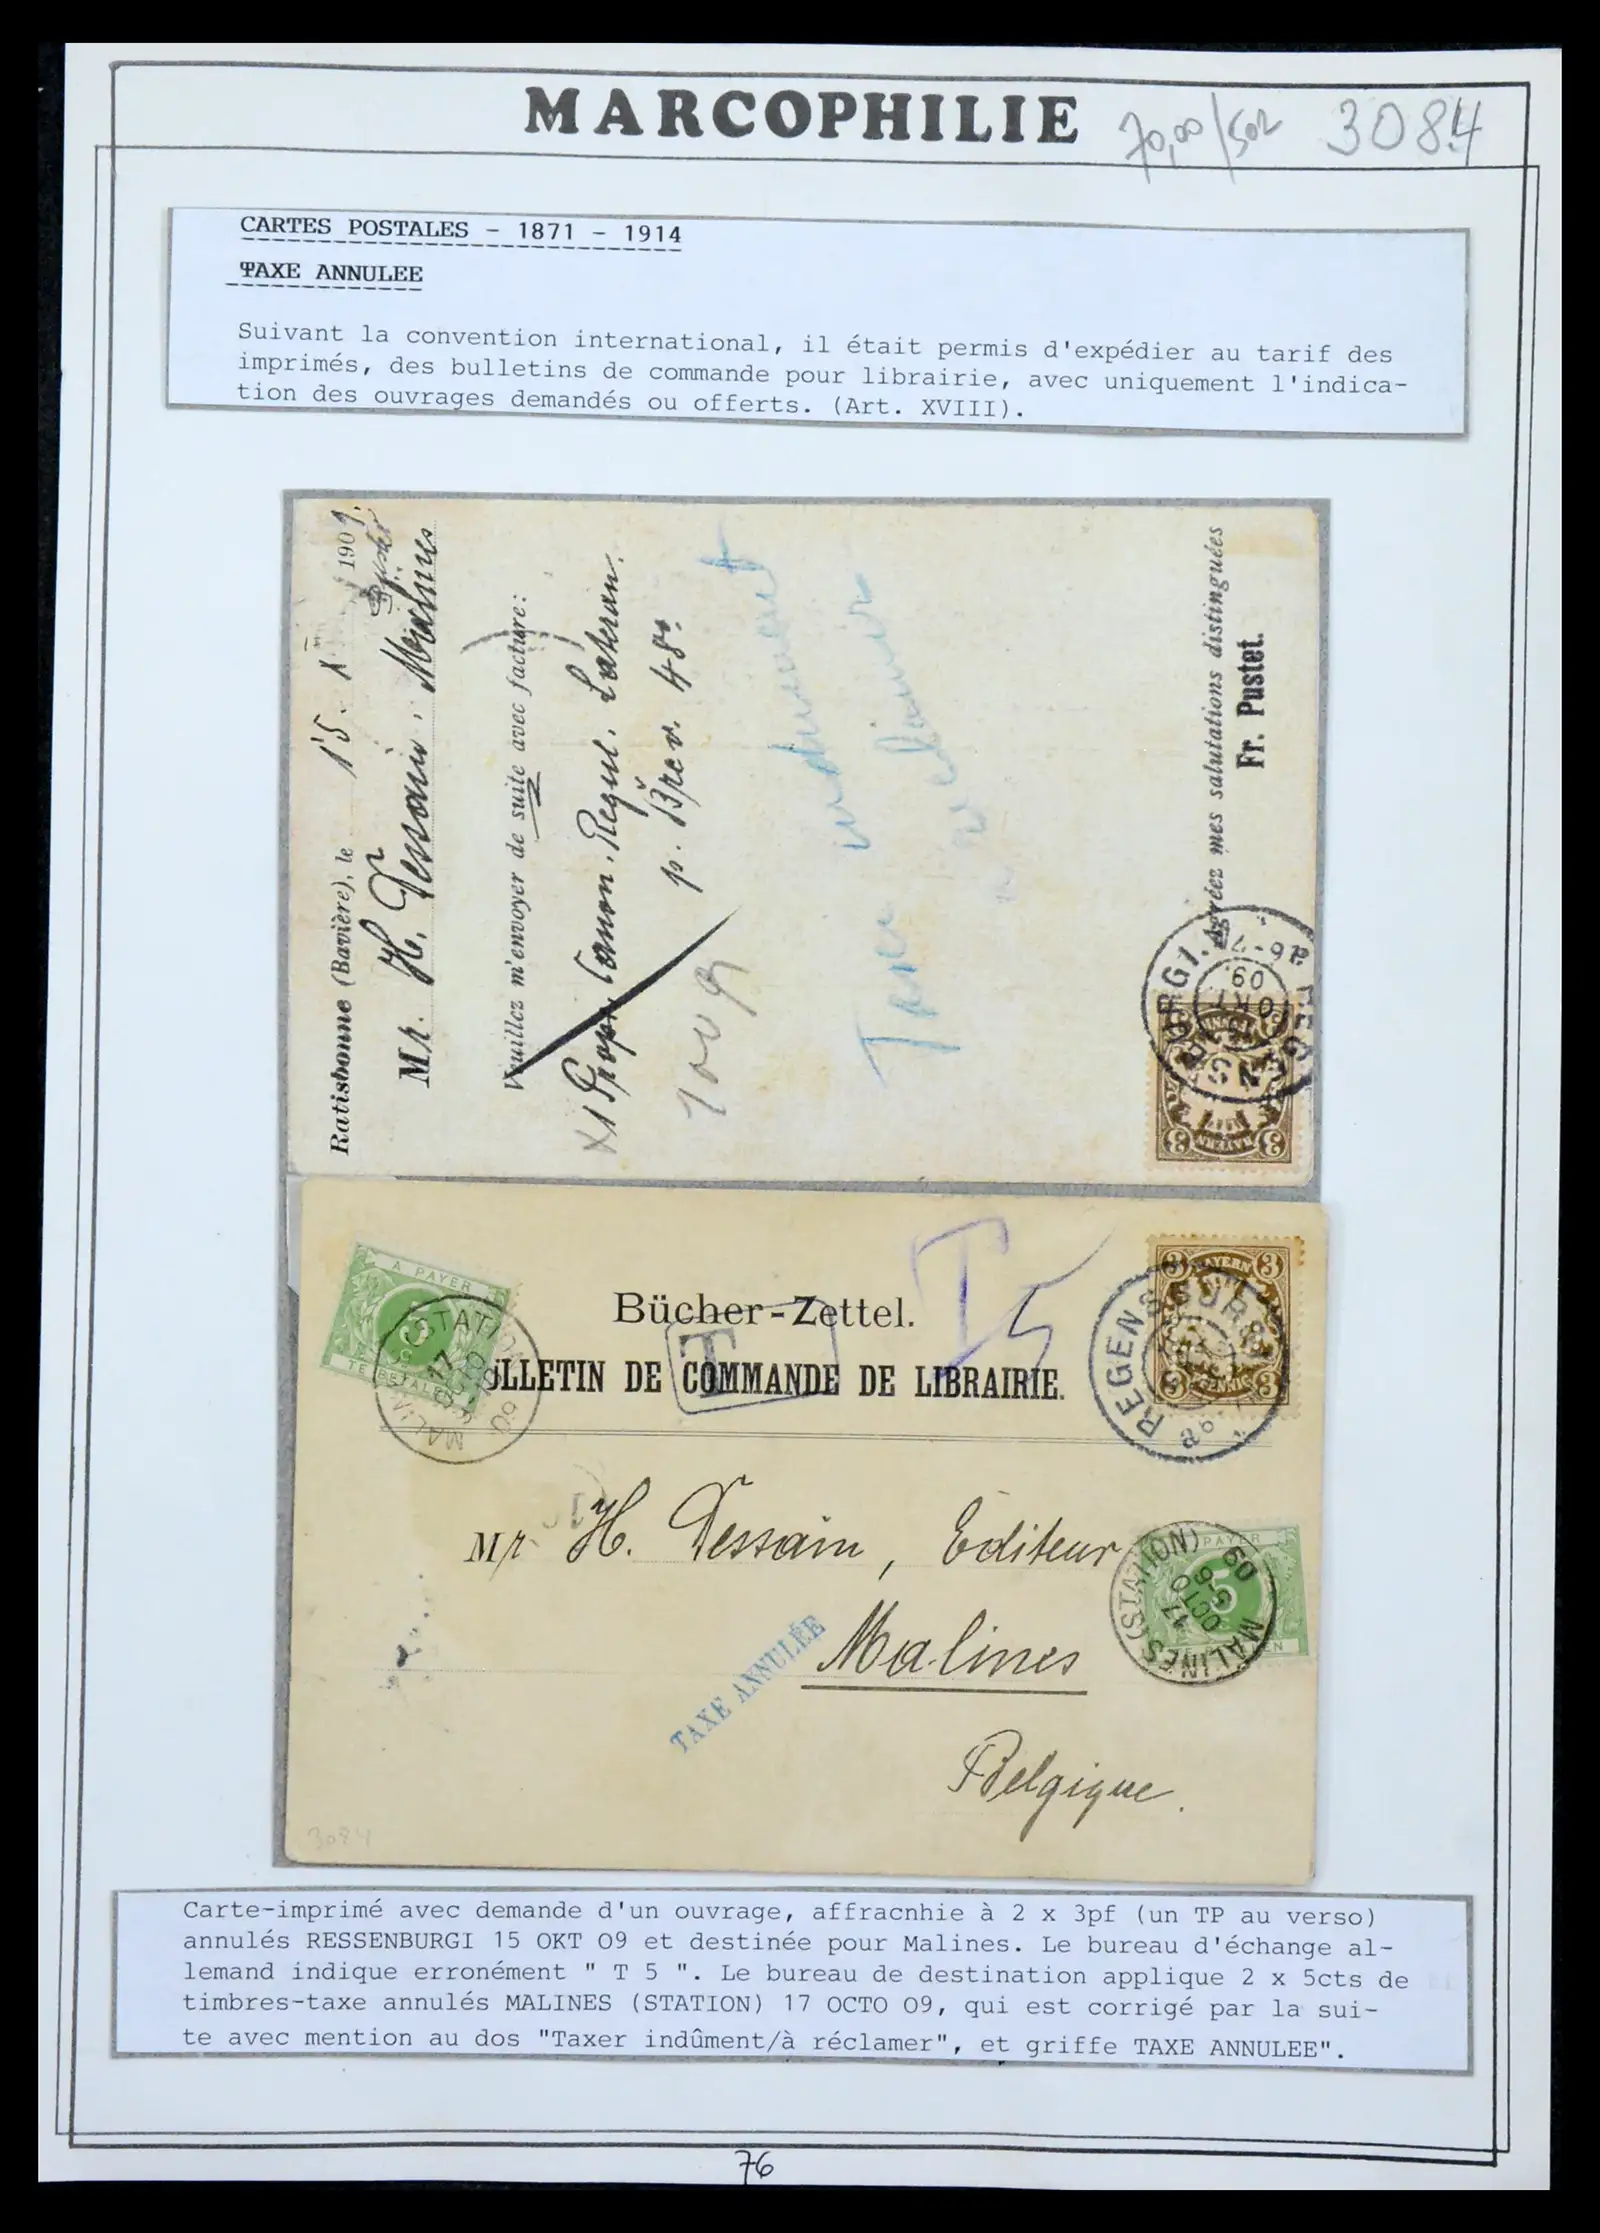 MARCOPHILIE
70,00/502
3084
CARTES POSTALES - 1871 - 1914
TAXE ANNULEE
Suivant la convention international, il était permis d'expédier au tarif des
imprimés, des bulletins de commande pour librairie, avec uniquement l'indica-
tion des ouvrages demandés ou offerts. (Art. XVIII).
Ratisbonne (Bavière), le 15. X 1909.
Mr. H. Dessain, Malines
Veuillez m'envoyer de suite avec facture:
1 Propr. Canon. Regul. Lateran.
p. Brev. 48°
1009
Taxe indument
a réclamer
Agréez mes salutations distinguées
Fr. Pustet.
REGENSBURG I.
OKT
09
6-7
BAYERN
3
A PAYER
5
TE BETALEN
MALINES (STATION)
17 OCTO
09
Bücher-Zettel.
T 5
T
BULLETIN DE COMMANDE DE LIBRAIRIE.
BAYERN
3
PFENNIG
REGENSBURG
Mr H. Dessain, Editeur
A PAYER
5
TE BETALEN
MALINES (STATION)
17 OCTO
5-6
09
TAXE ANNULÉE
Malines
Belgique.
3084
Carte-imprimé avec demande d'un ouvrage, affracnhie à 2 x 3pf (un TP au verso)
annulés RESSENBURGI 15 OKT O9 et destinée pour Malines. Le bureau d'échange al-
lemand indique erronément " T 5 ". Le bureau de destination applique 2 x 5cts de
timbres-taxe annulés MALINES (STATION) 17 OCTO O9, qui est corrigé par la sui-
te avec mention au dos "Taxer indûment/à réclamer", et griffe TAXE ANNULEE".
76